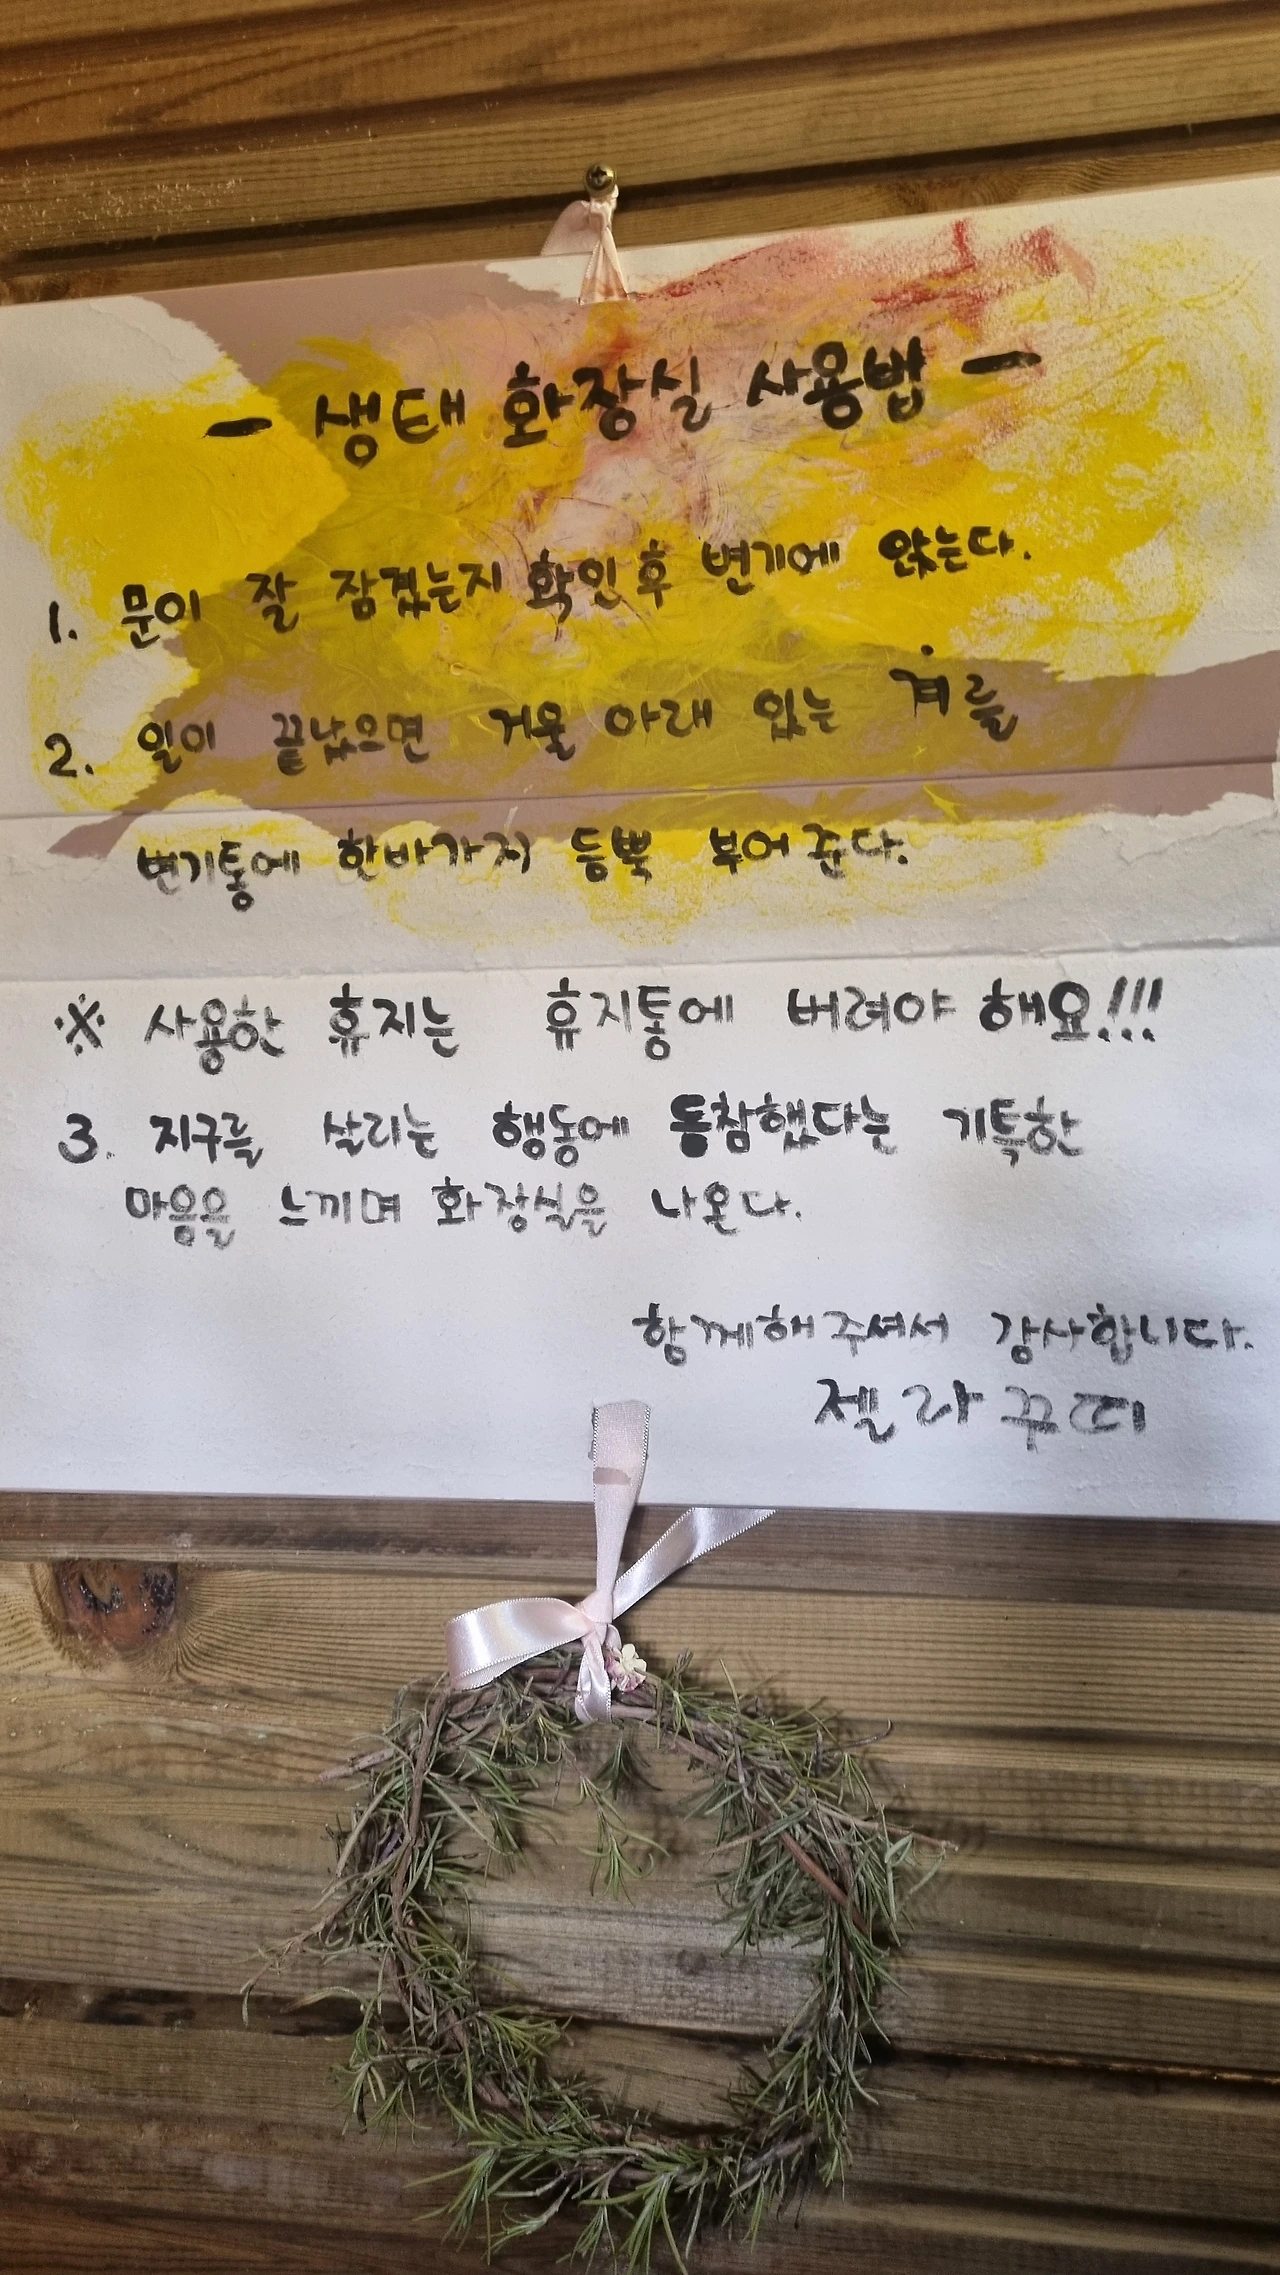 - 생태 화장실 사용법 -
1. 문이 잘 잠겼는지 확인 후 변기에 앉는다.
2. 일이 끝났으면 거울 아래 있는 겨를
변기통에 한바가지 듬뿍 부어 준다.
※ 사용한 휴지는 휴지통에 버려야 해요!!!
3. 지구를 살리는 행동에 동참했다는 기특한
마음을 느끼며 화장실을 나온다.
함께해주셔서 감사합니다.
젤라꾸띠